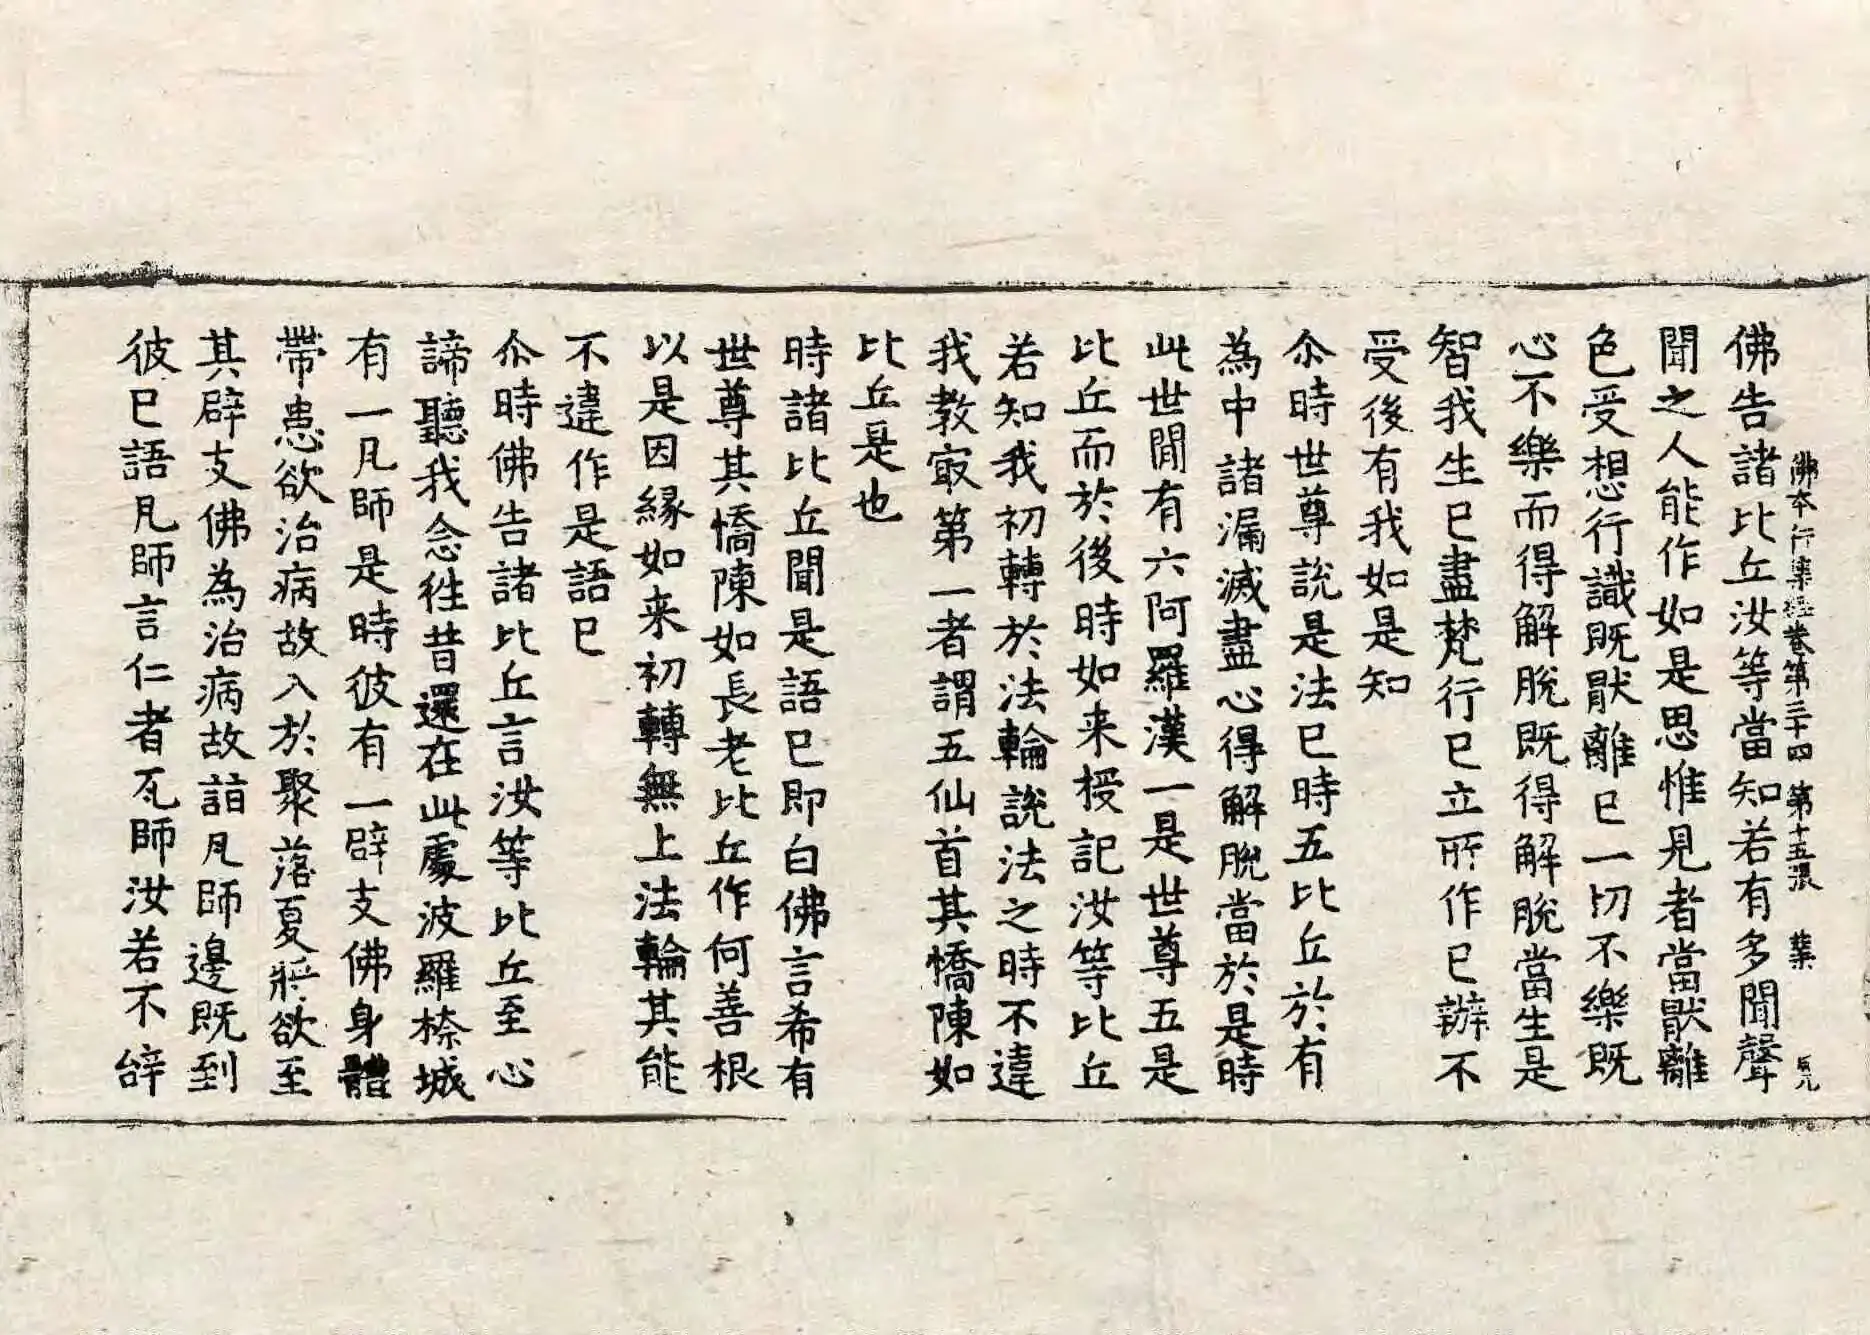 佛本行集經卷第三十四　第十五張　業
佛告諸比丘汝等當知若有多聞聲
聞之人能作如是思惟見者當猒離
色受想行識既猒離已一切不樂既
心不樂而得解脫既得解脫當生是
智我生已盡梵行已立所作已辦不
受後有我如是知
尒時世尊說是法已時五比丘於有
為中諸漏滅盡心得解脫當於是時
此世間有六阿羅漢一是世尊五是
比丘而於後時如来授記汝等比丘
若知我初轉於法輪說法之時不違
我教㝡第一者謂五仙首其憍陳如
比丘是也
時諸比丘聞是語已即白佛言希有
世尊其憍陳如長老比丘作何善根
以是因緣如来初轉無上法輪其能
不違作是語已
尒時佛告諸比丘言汝等比丘至心
諦聽我念徃昔還在此處波羅㮈城
有一瓦師是時彼有一辟支佛身體
帶患欲治病故入於聚落夏將欲至
其辟支佛為治病故詣瓦師邊既到
彼已語瓦師言仁者瓦師汝若不辝